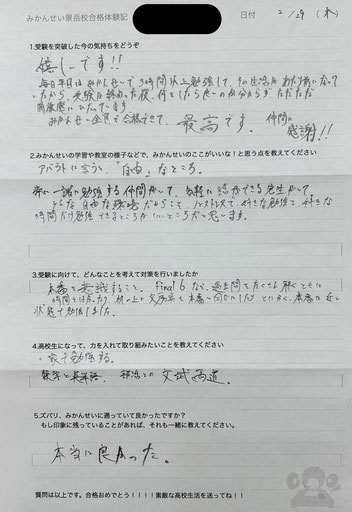 みかんせい景岳校合格体験記
日付 2/29(木)
1.受験を突破した今の気持ちをどうぞ
嬉しいです!!
毎日平日はみかんせいで、3時間以上勉強して、その生活があたり前になっていたから、受験が終わった後、何をしたら良いのか分からずただただ
開放感にひたっています
みかんせい全員で合格できて、最高です。仲間に
感謝!!
2.みかんせいの学習や教室の様子などで、みかんせいのここがいいな!と思う点を教えてください
アバウトに言うと、「自由」なところ。
常に一緒に勉強する仲間がいて、気軽に話ができる先生がいて。
そんな自由な環境だからこそ、ノンストレスで、好きな勉強を、好きな
時間だけ勉強できるところがいいところだと思います。
3.受験に向けて、どんなことを考えて対策を行いましたか
本番を意識すること。Final 6など、過去問をたくさん解くとともに
時間を
本番に近い
状態で勉強しました。
4.高校生になって、力を入れて取り組みたいことを教えてください
家で勉強する。
数学と英語、部活との文武両道。
5.ズバリ、みかんせいに通っていて良かったですか?
もし印象に残っていることがあれば、それも一緒に教えてください。
本当に良かった。
質問は以上です。合格おめでとう!!!!素敵な高校生活を送ってね!!